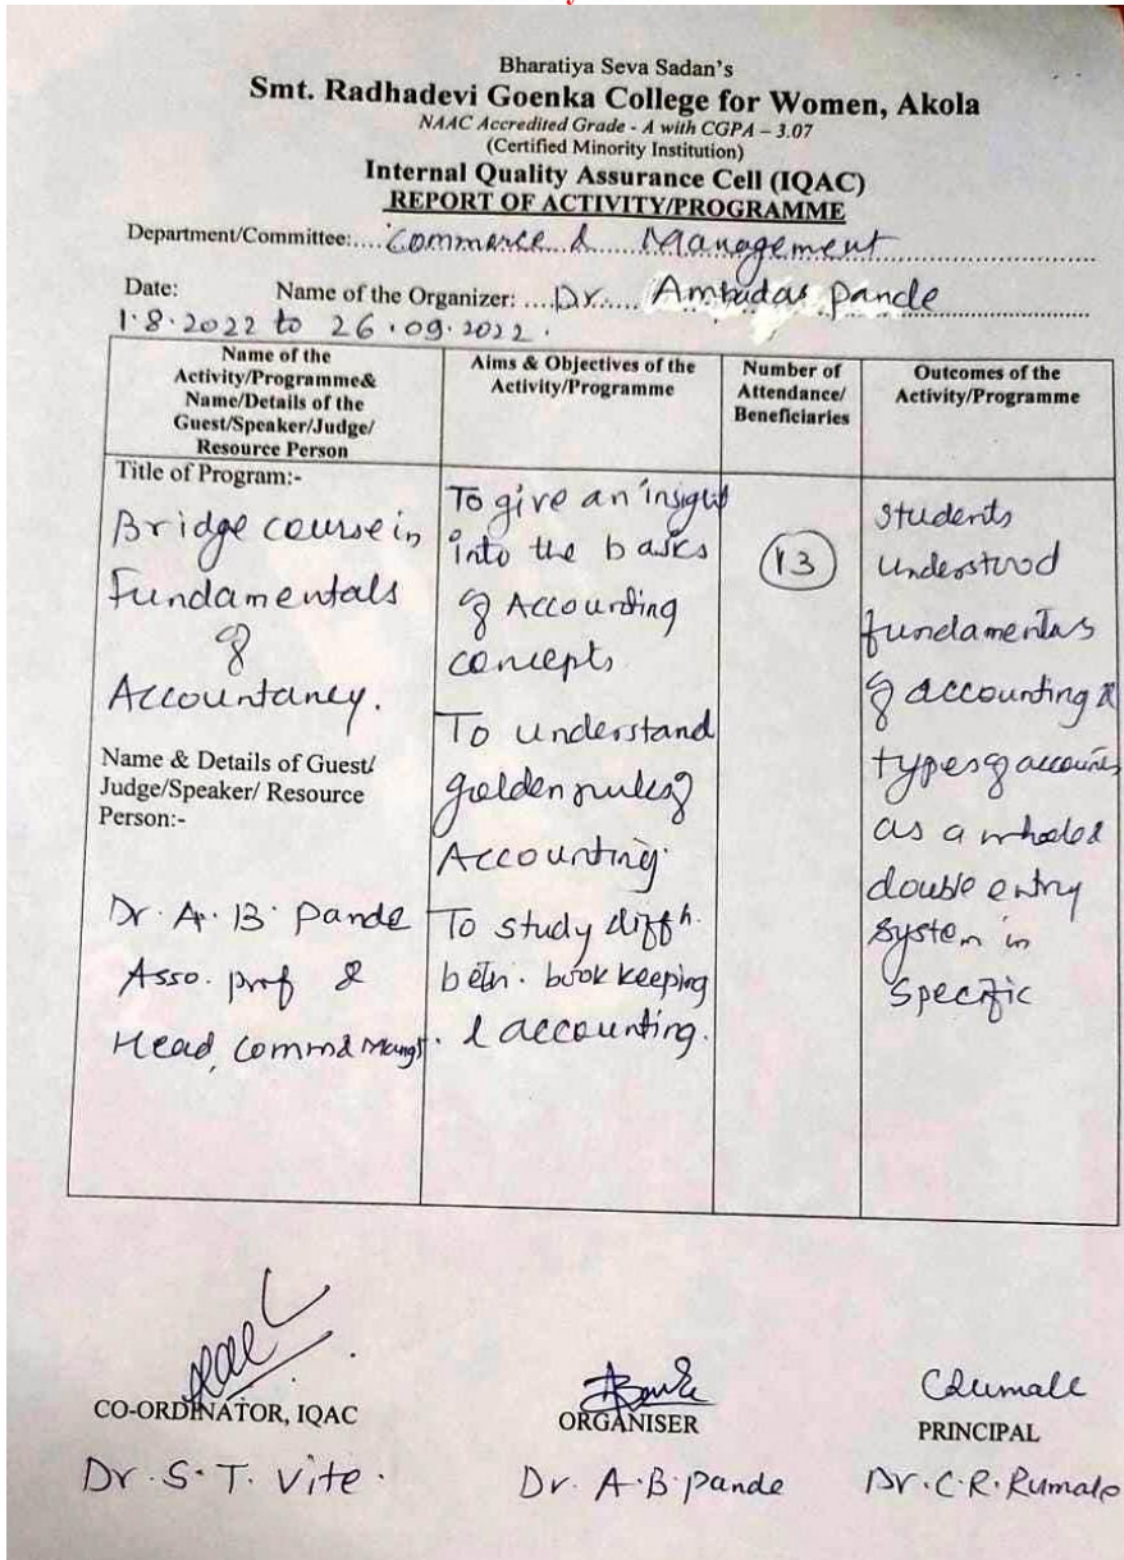 Bharatiya Seva Sadan's
Smt. Radhadevi Goenka College for Women, Akola
NAAC Accredited Grade - A with CGPA – 3.07
(Certified Minority Institution)
Internal Quality Assurance Cell (IQAC)
REPORT OF ACTIVITY/PROGRAMME
Department/Committee:.... Commerce & Management
Date: Name of the Organizer: ....Dr..... Ambadas Pande
1.8.2022 to 26.09.2022.
Name of the
Activity/Programme&
Name/Details of the
Guest/Speaker/Judge/
Resource Person
Aims & Objectives of the
Activity/Programme
Number of
Attendance/
Beneficiaries
Outcomes of the
Activity/Programme
Title of Program:-
Bridge course in
Fundamentals
of
Accountancy.
Name & Details of Guest/
Judge/Speaker/ Resource
Person:-
Dr. A. B. Pande
Asso. prof &
Head, Comm &
To give an insight
into the basics
of Accounting
concepts
To understand
golden rules of
Accounting.
To study diffn.
betn. book keeping
& accounting.
13
Students
Understood
fundamentals
of accounting &
types of accounts
as a whole &
double entry
system in
Specific
CO-ORDINATOR, IQAC
Dr. S. T. Vite.
ORGANISER
Dr. A. B. Pande
PRINCIPAL
Dr. C. R. Rumale